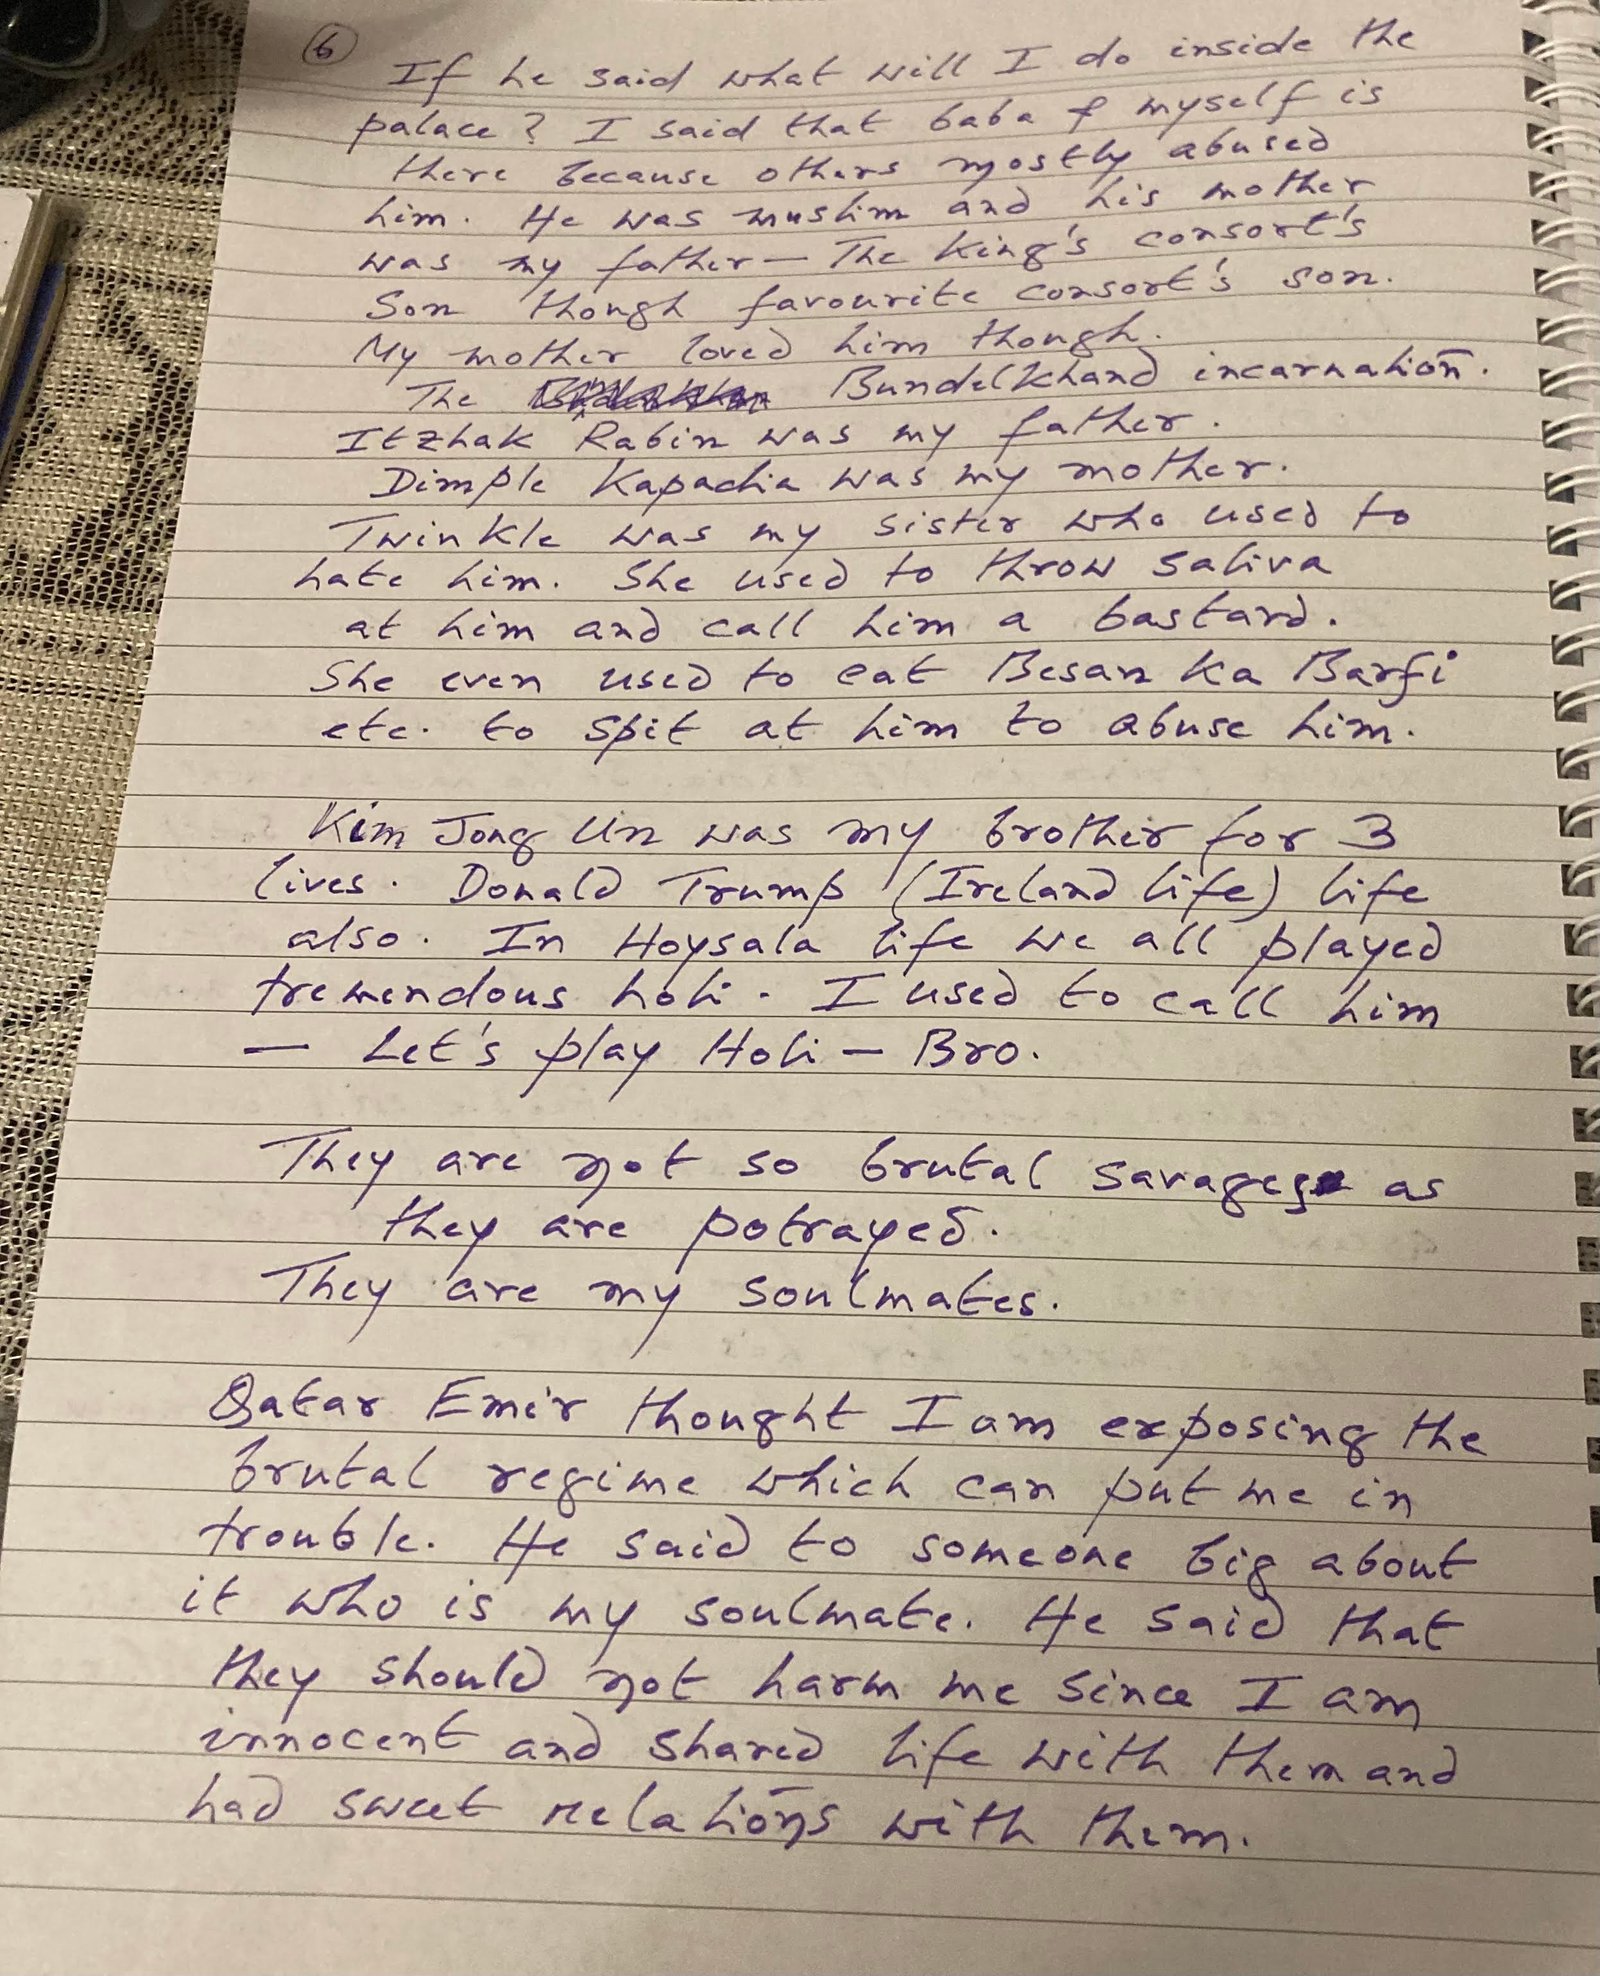 6
If he said what will I do inside the
palace? I said that baba & myself is
there because others mostly abused
him. He was muslim and his mother
was my father — The King's consort's
Son though favourite consort's son.
My mother loved him though.
The Bundelkhand incarnation.
Itzhak Rabin was my father.
Dimple Kapadia was my mother.
Twinkle was my sister who used to
hate him. She used to throw saliva
at him and call him a bastard.
She even used to eat Besan Ka Barfi
etc. to spit at him to abuse him.
Kim Jong Un was my brother for 3
lives. Donald Trump (Ireland life) life
also. In Hoysala life we all played
tremendous holi. I used to call him
— Let's play Holi — Bro.
They are not so brutal savages as
they are potrayed.
They are my soulmates.
Qatar Emir thought I am exposing the
brutal regime which can put me in
trouble. He said to someone big about
it who is my soulmate. He said that
they should not harm me since I am
innocent and shared life with them and
had sweet relations with them.